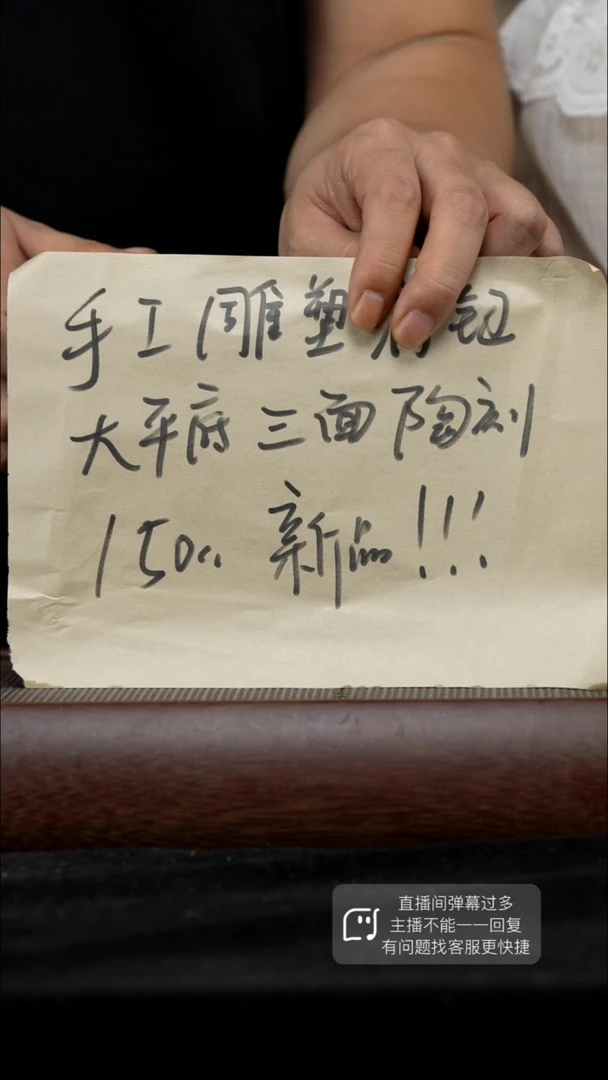 手工雕塑 钮
大平底三面陶刻
150cc 新品!!!
直播间弹幕过多
主播不能一一回复
有问题找客服更快捷